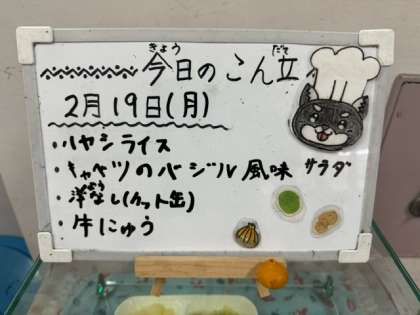 今日のこん立
2月19日(月)
・ハヤシライス
・キャベツのバジル風味 サラダ
・洋なし(カット缶)
・牛にゅう